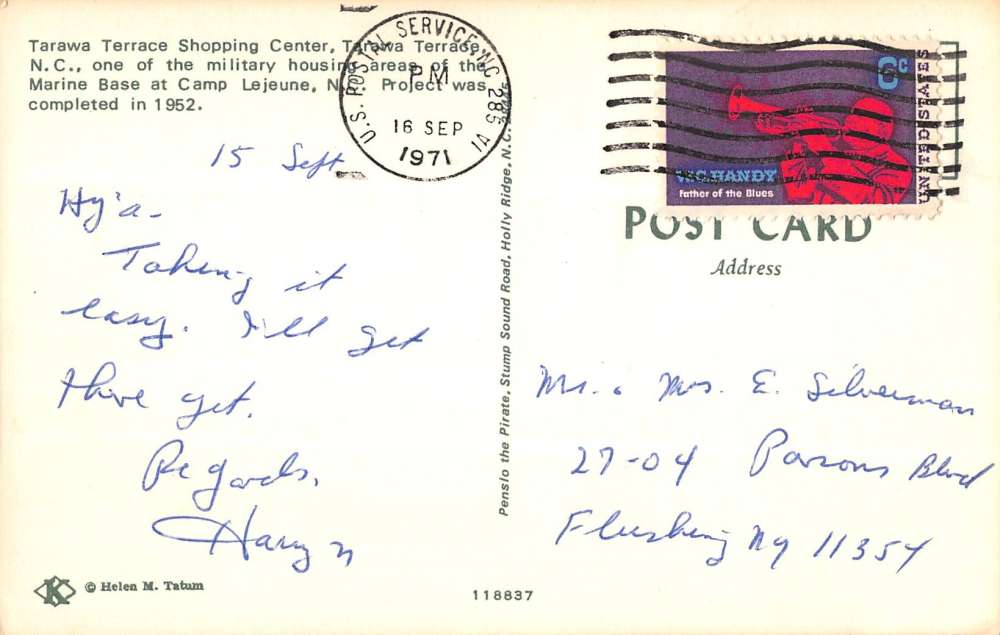 Tarawa Terrace Shopping Center, Tarawa Terrace,
N.C., one of the military housing areas of the
Marine Base at Camp Lejeune, N.C. Project was
completed in 1952.
U.S. POSTAL SERVICE, NC 285 VI
PM
16 SEP
1971
6c
UNITED STATES
W.C. HANDY
Father of the Blues
POST CARD
Address
15 Sept
Hy'a-
Taking it
easy. I'll get
there yet.
Regards,
Harry
Penslo the Pirate, Stump Sound Road, Holly Ridge, N.C.
Mr. & Mrs. E. Silverman
27-04 Parsons Blvd
Flushing NY 11354
K
© Helen M. Tatum
118837